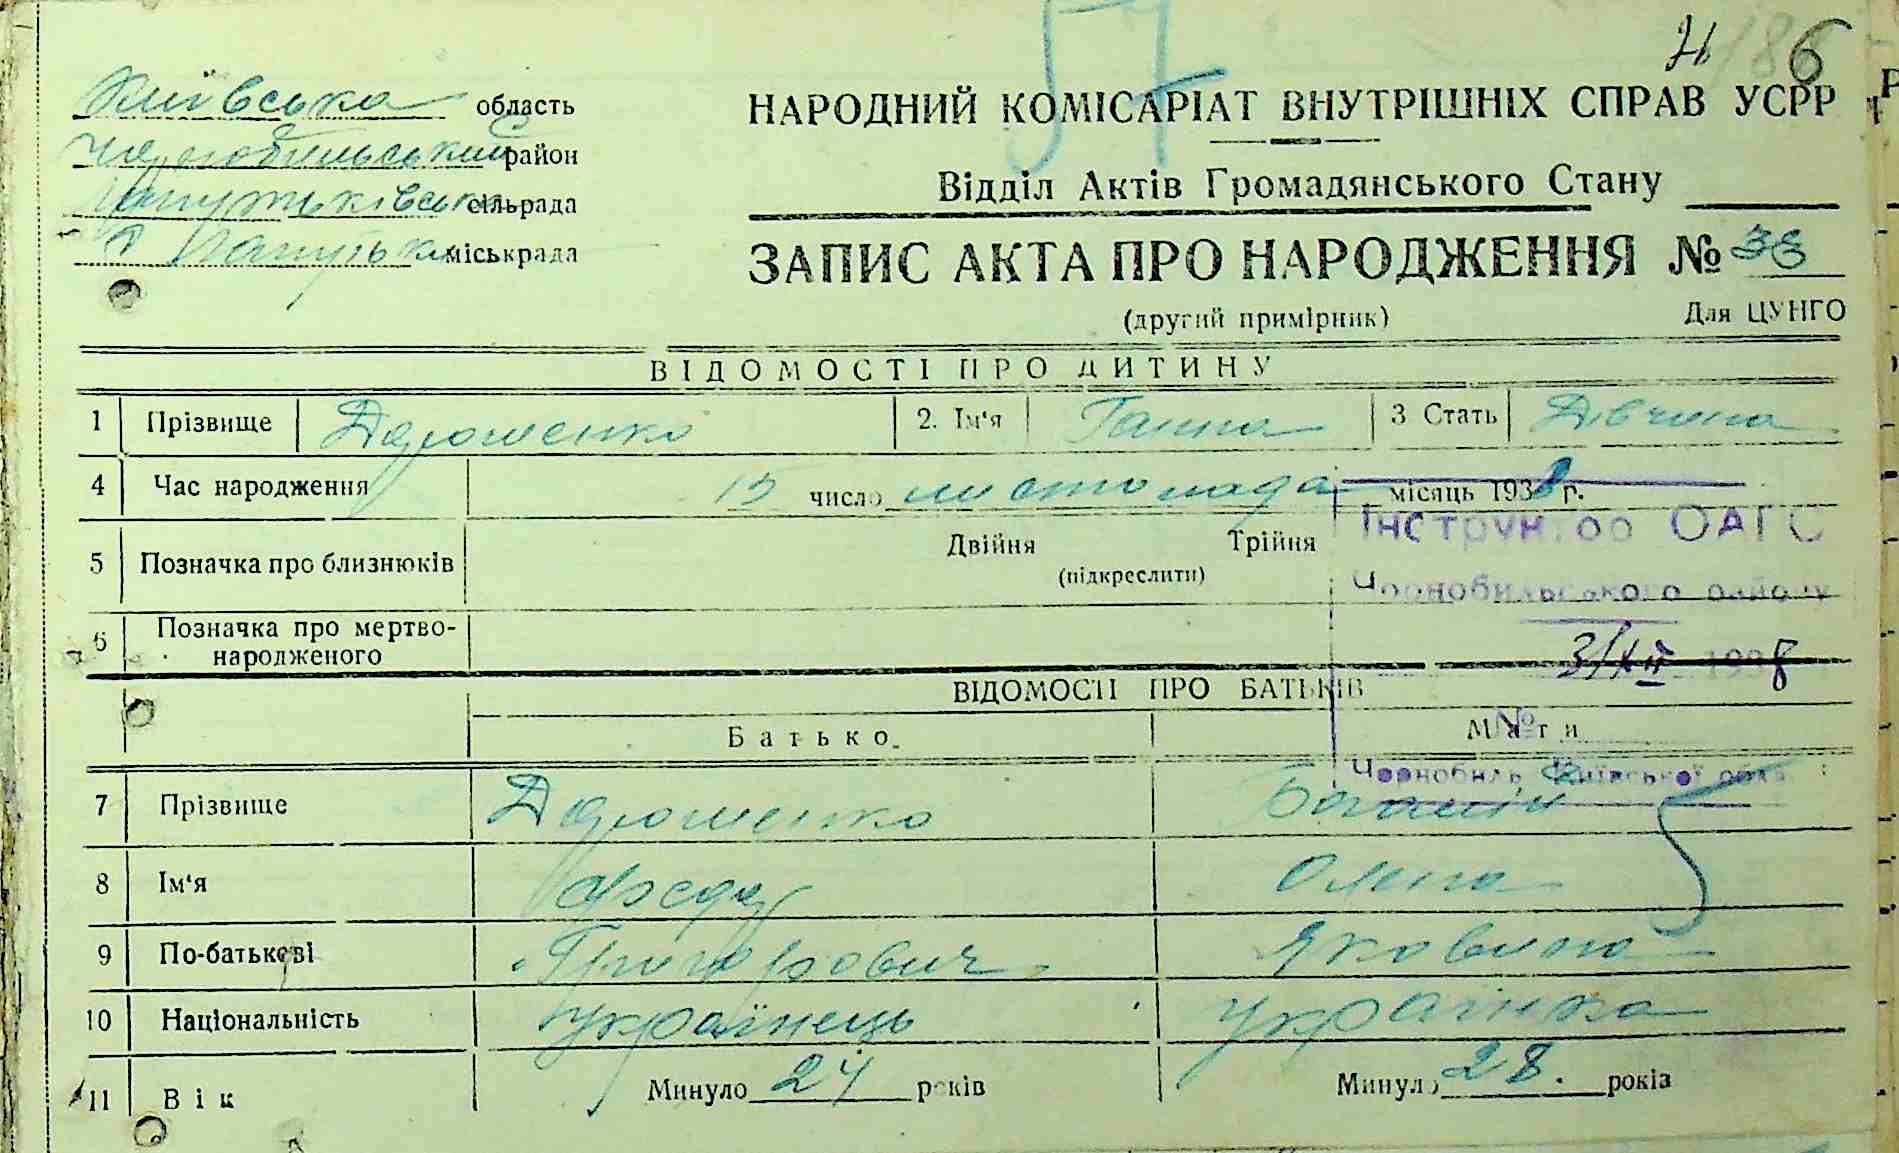 57
6
Київська область
Чорнобильський район
сільрада
міськрада
НАРОДНИЙ КОМІСАРІАТ ВНУТРІШНІХ СПРАВ УСРР
Відділ Актів Громадянського Стану
ЗАПИС АКТА ПРО НАРОДЖЕННЯ № 38
(другий примірник) Для ЦУНГО
ВІДОМОСТІ ПРО ДИТИНУ
1 Прізвище Дорошенко 2. Ім'я Ганна 3 Стать Дівчина
4 Час народження 15 число листопада місяць 1938 г.
Інструктор ОАГС
5 Позначка про близнюків Двійня Трійня
(підкреслити)
Чорнобильського району
6 Позначка про мертво-
народженого
3/XII 1938
ВІДОМОСТІ ПРО БАТЬКІВ
Батько Мати
№
Чорнобиль Київської обл.
7 Прізвище Дорошенко
8 Ім'я Федір Олена
9 По-батькові Григорович Яковина
10 Національність українець українка
11 Вік Минуло 24 років Минуло 28. років